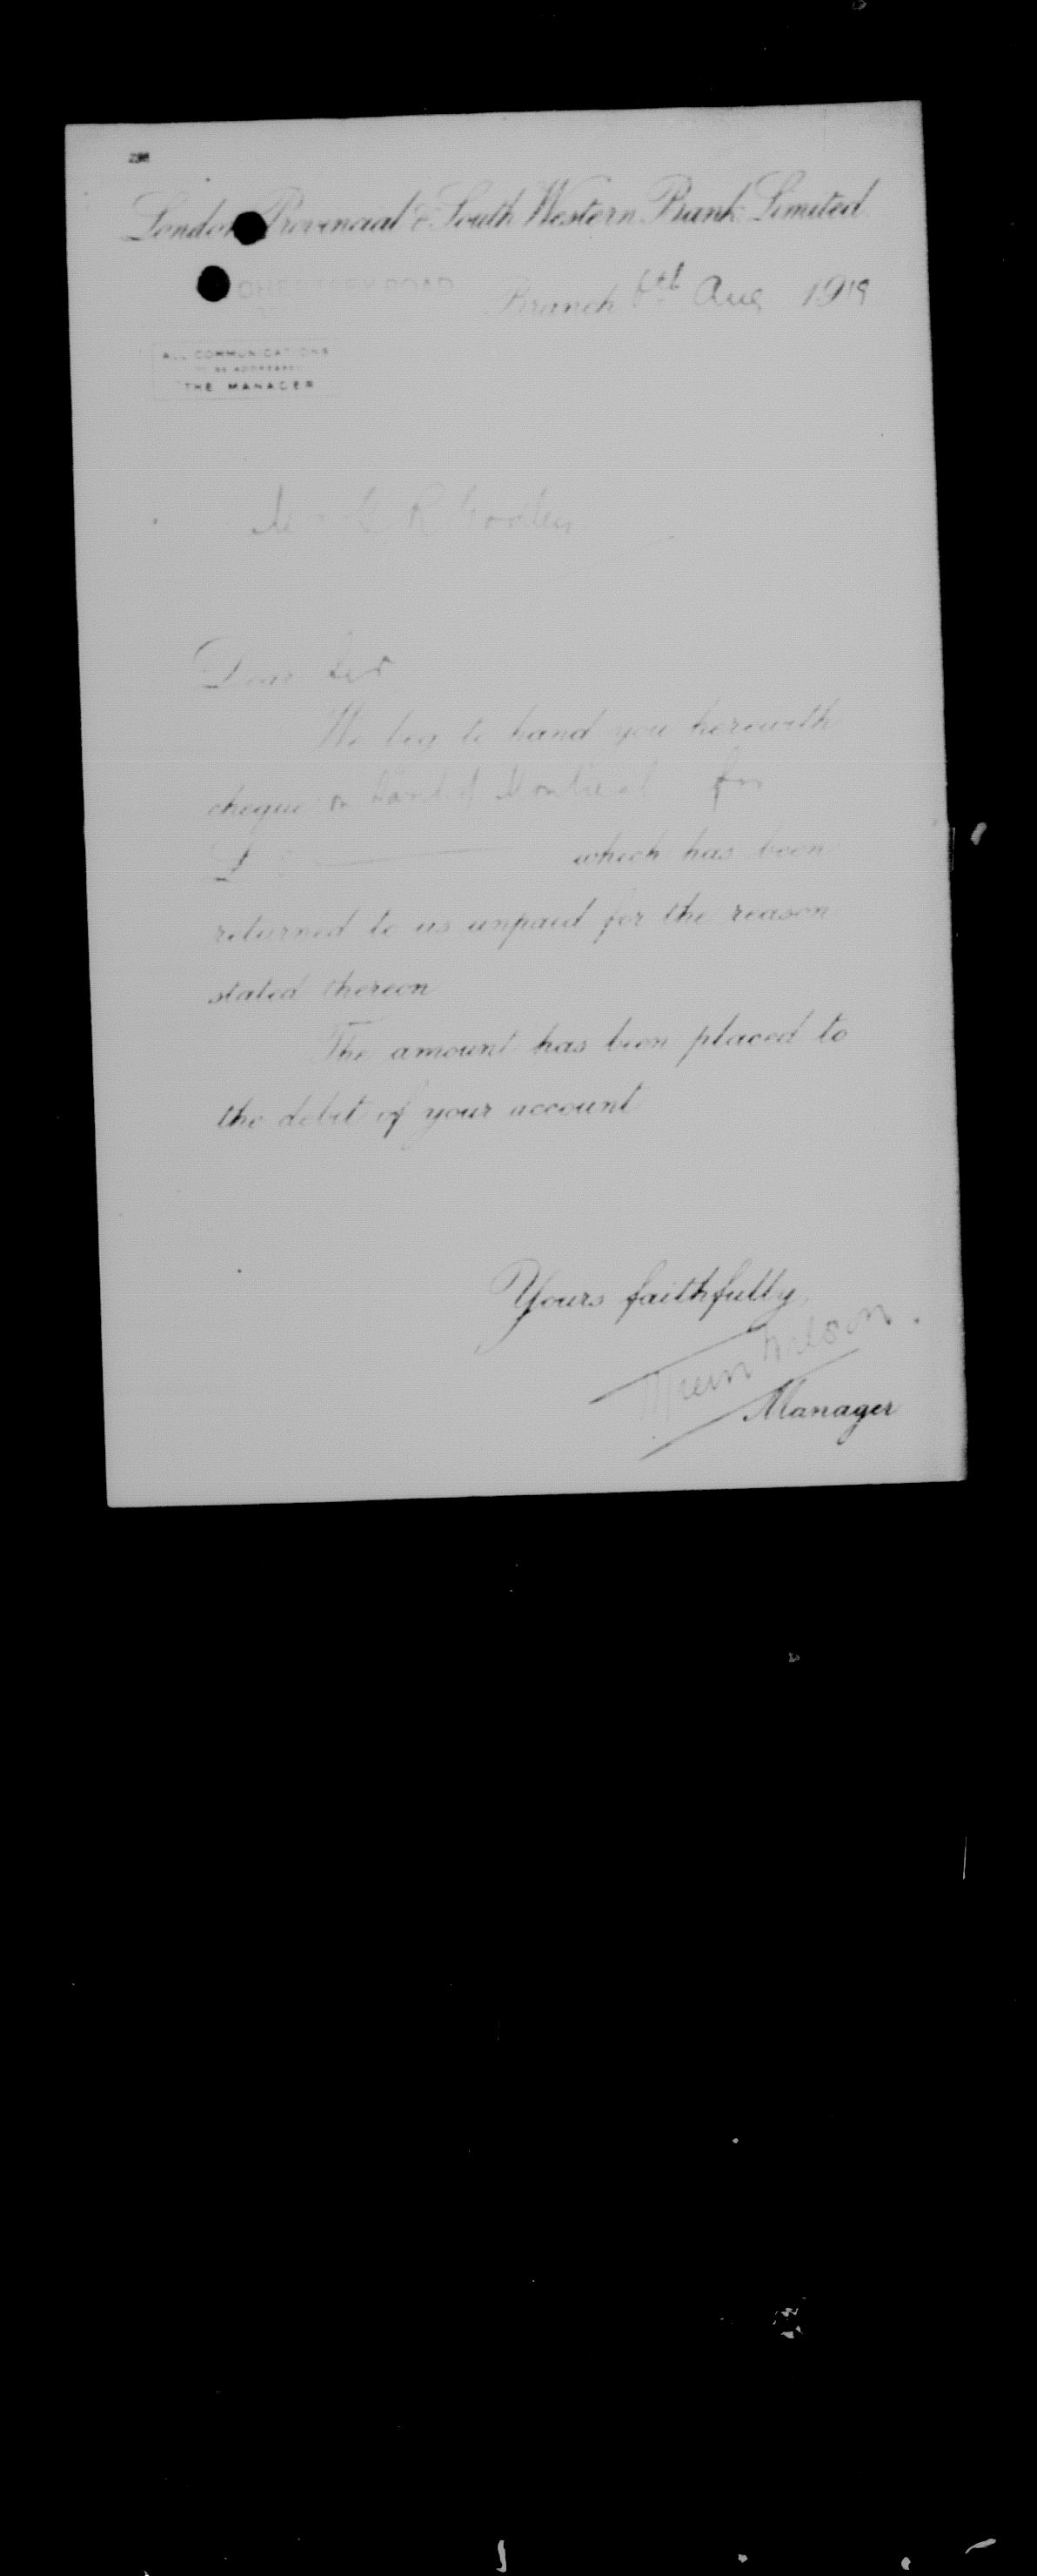 London Provincial & South Western Bank Limited
ROAD
Branch 6th Aug 1919
ALL COMMUNICATIONS
TO BE ADDRESSED
THE MANAGER
R
Dear Sir
We beg to hand you herewith
cheque on Bank of Montreal for
£ which has been
returned to us unpaid for the reason
stated thereon
The amount has been placed to
the debit of your account
Yours faithfully
Wilson.
Manager